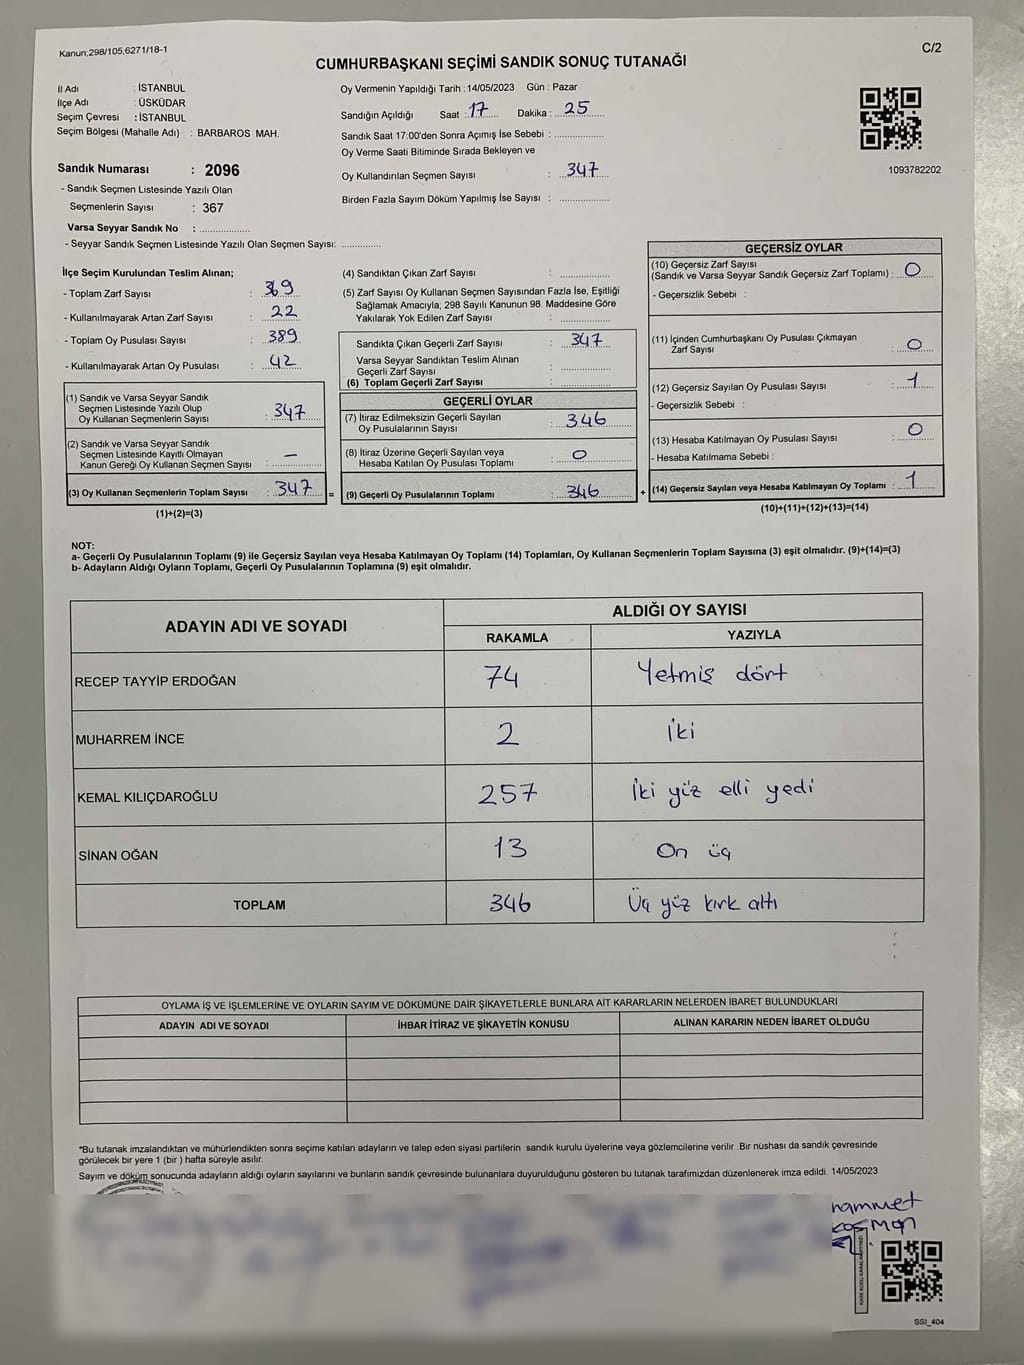 Kanun;298/105,6271/18-1
C/2
CUMHURBAŞKANI SEÇİMİ SANDIK SONUÇ TUTANAĞI
İl Adı : İSTANBUL
İlçe Adı : ÜSKÜDAR
Seçim Çevresi : İSTANBUL
Seçim Bölgesi (Mahalle Adı) : BARBAROS MAH.
Oy Vermenin Yapıldığı Tarih : 14/05/2023 Gün : Pazar
Sandığın Açıldığı Saat : 17 Dakika : 25
Sandık Saat 17:00'den Sonra Açımış İse Sebebi : ..................
Oy Verme Saati Bitiminde Sırada Bekleyen ve
Oy Kullandırılan Seçmen Sayısı : 347
Birden Fazla Sayım Döküm Yapılmış İse Sayısı : ..................
1093782202
Sandık Numarası : 2096
- Sandık Seçmen Listesinde Yazılı Olan
Seçmenlerin Sayısı : 367
Varsa Seyyar Sandık No : ..................
- Seyyar Sandık Seçmen Listesinde Yazılı Olan Seçmen Sayısı: ..............
İlçe Seçim Kurulundan Teslim Alınan;
- Toplam Zarf Sayısı : 369
- Kullanılmayarak Artan Zarf Sayısı : 22
- Toplam Oy Pusulası Sayısı : 389
- Kullanılmayarak Artan Oy Pusulası : 42
(1) Sandık ve Varsa Seyyar Sandık
Seçmen Listesinde Yazılı Olup
Oy Kullanan Seçmenlerin Sayısı : 347
(2) Sandık ve Varsa Seyyar Sandık
Seçmen Listesinde Kayıtlı Olmayan
Kanun Gereği Oy Kullanan Seçmen Sayısı : –
(3) Oy Kullanan Seçmenlerin Toplam Sayısı : 347 =
(1)+(2)=(3)
(4) Sandıktan Çıkan Zarf Sayısı : ..................
(5) Zarf Sayısı Oy Kullanan Seçmen Sayısından Fazla İse, Eşitliği
Sağlamak Amacıyla; 298 Sayılı Kanunun 98. Maddesine Göre
Yakılarak Yok Edilen Zarf Sayısı : ..................
Sandıkta Çıkan Geçerli Zarf Sayısı : 347
Varsa Seyyar Sandıktan Teslim Alınan
Geçerli Zarf Sayısı : ..................
(6) Toplam Geçerli Zarf Sayısı : ..................
GEÇERLİ OYLAR
(7) İtiraz Edilmeksizin Geçerli Sayılan
Oy Pusulalarının Sayısı : 346
(8) İtiraz Üzerine Geçerli Sayılan veya
Hesaba Katılan Oy Pusulası Toplamı : 0
(9) Geçerli Oy Pusulalarının Toplamı : 346 +
GEÇERSİZ OYLAR
(10) Geçersiz Zarf Sayısı
(Sandık ve Varsa Seyyar Sandık Geçersiz Zarf Toplamı) : 0
- Geçersizlik Sebebi :
(11) İçinden Cumhurbaşkanı Oy Pusulası Çıkmayan
Zarf Sayısı : 0
(12) Geçersiz Sayılan Oy Pusulası Sayısı : 1
- Geçersizlik Sebebi :
(13) Hesaba Katılmayan Oy Pusulası Sayısı : 0
- Hesaba Katılmama Sebebi :
(14) Geçersiz Sayılan veya Hesaba Katılmayan Oy Toplamı : 1
(10)+(11)+(12)+(13)=(14)
NOT:
a- Geçerli Oy Pusulalarının Toplamı (9) ile Geçersiz Sayılan veya Hesaba Katılmayan Oy Toplamı (14) Toplamları, Oy Kullanan Seçmenlerin Toplam Sayısına (3) eşit olmalıdır. (9)+(14)=(3)
b- Adayların Aldığı Oyların Toplamı, Geçerli Oy Pusulalarının Toplamına (9) eşit olmalıdır.
ADAYIN ADI VE SOYADI
ALDIĞI OY SAYISI
RAKAMLA YAZIYLA
RECEP TAYYİP ERDOĞAN 74 Yetmiş dört
MUHARREM İNCE 2 İki
KEMAL KILIÇDAROĞLU 257 İki yüz elli yedi
SİNAN OĞAN 13 On üç
TOPLAM 346 Üç yüz kırk altı
OYLAMA İŞ VE İŞLEMLERİNE VE OYLARIN SAYIM VE DÖKÜMÜNE DAİR ŞİKAYETLERLE BUNLARA AİT KARARLARIN NELERDEN İBARET BULUNDUKLARI
ADAYIN ADI VE SOYADI İHBAR İTİRAZ VE ŞİKAYETİN KONUSU ALINAN KARARIN NEDEN İBARET OLDUĞU
*Bu tutanak imzalandıktan ve mühürlendikten sonra seçime katılan adayların ve talep eden siyasi partilerin sandık kurulu üyelerine veya gözlemcilerine verilir .Bir nüshası da sandık çevresinde
görülecek bir yere 1 (bir ) hafta süreyle asılır.
Sayım ve döküm sonucunda adayların aldığı oyların sayılarını ve bunların sandık çevresinde bulunanlara duyurulduğunu gösteren bu tutanak tarafımızdan düzenlenerek imza edildi. 14/05/2023
hammet
SSI_404